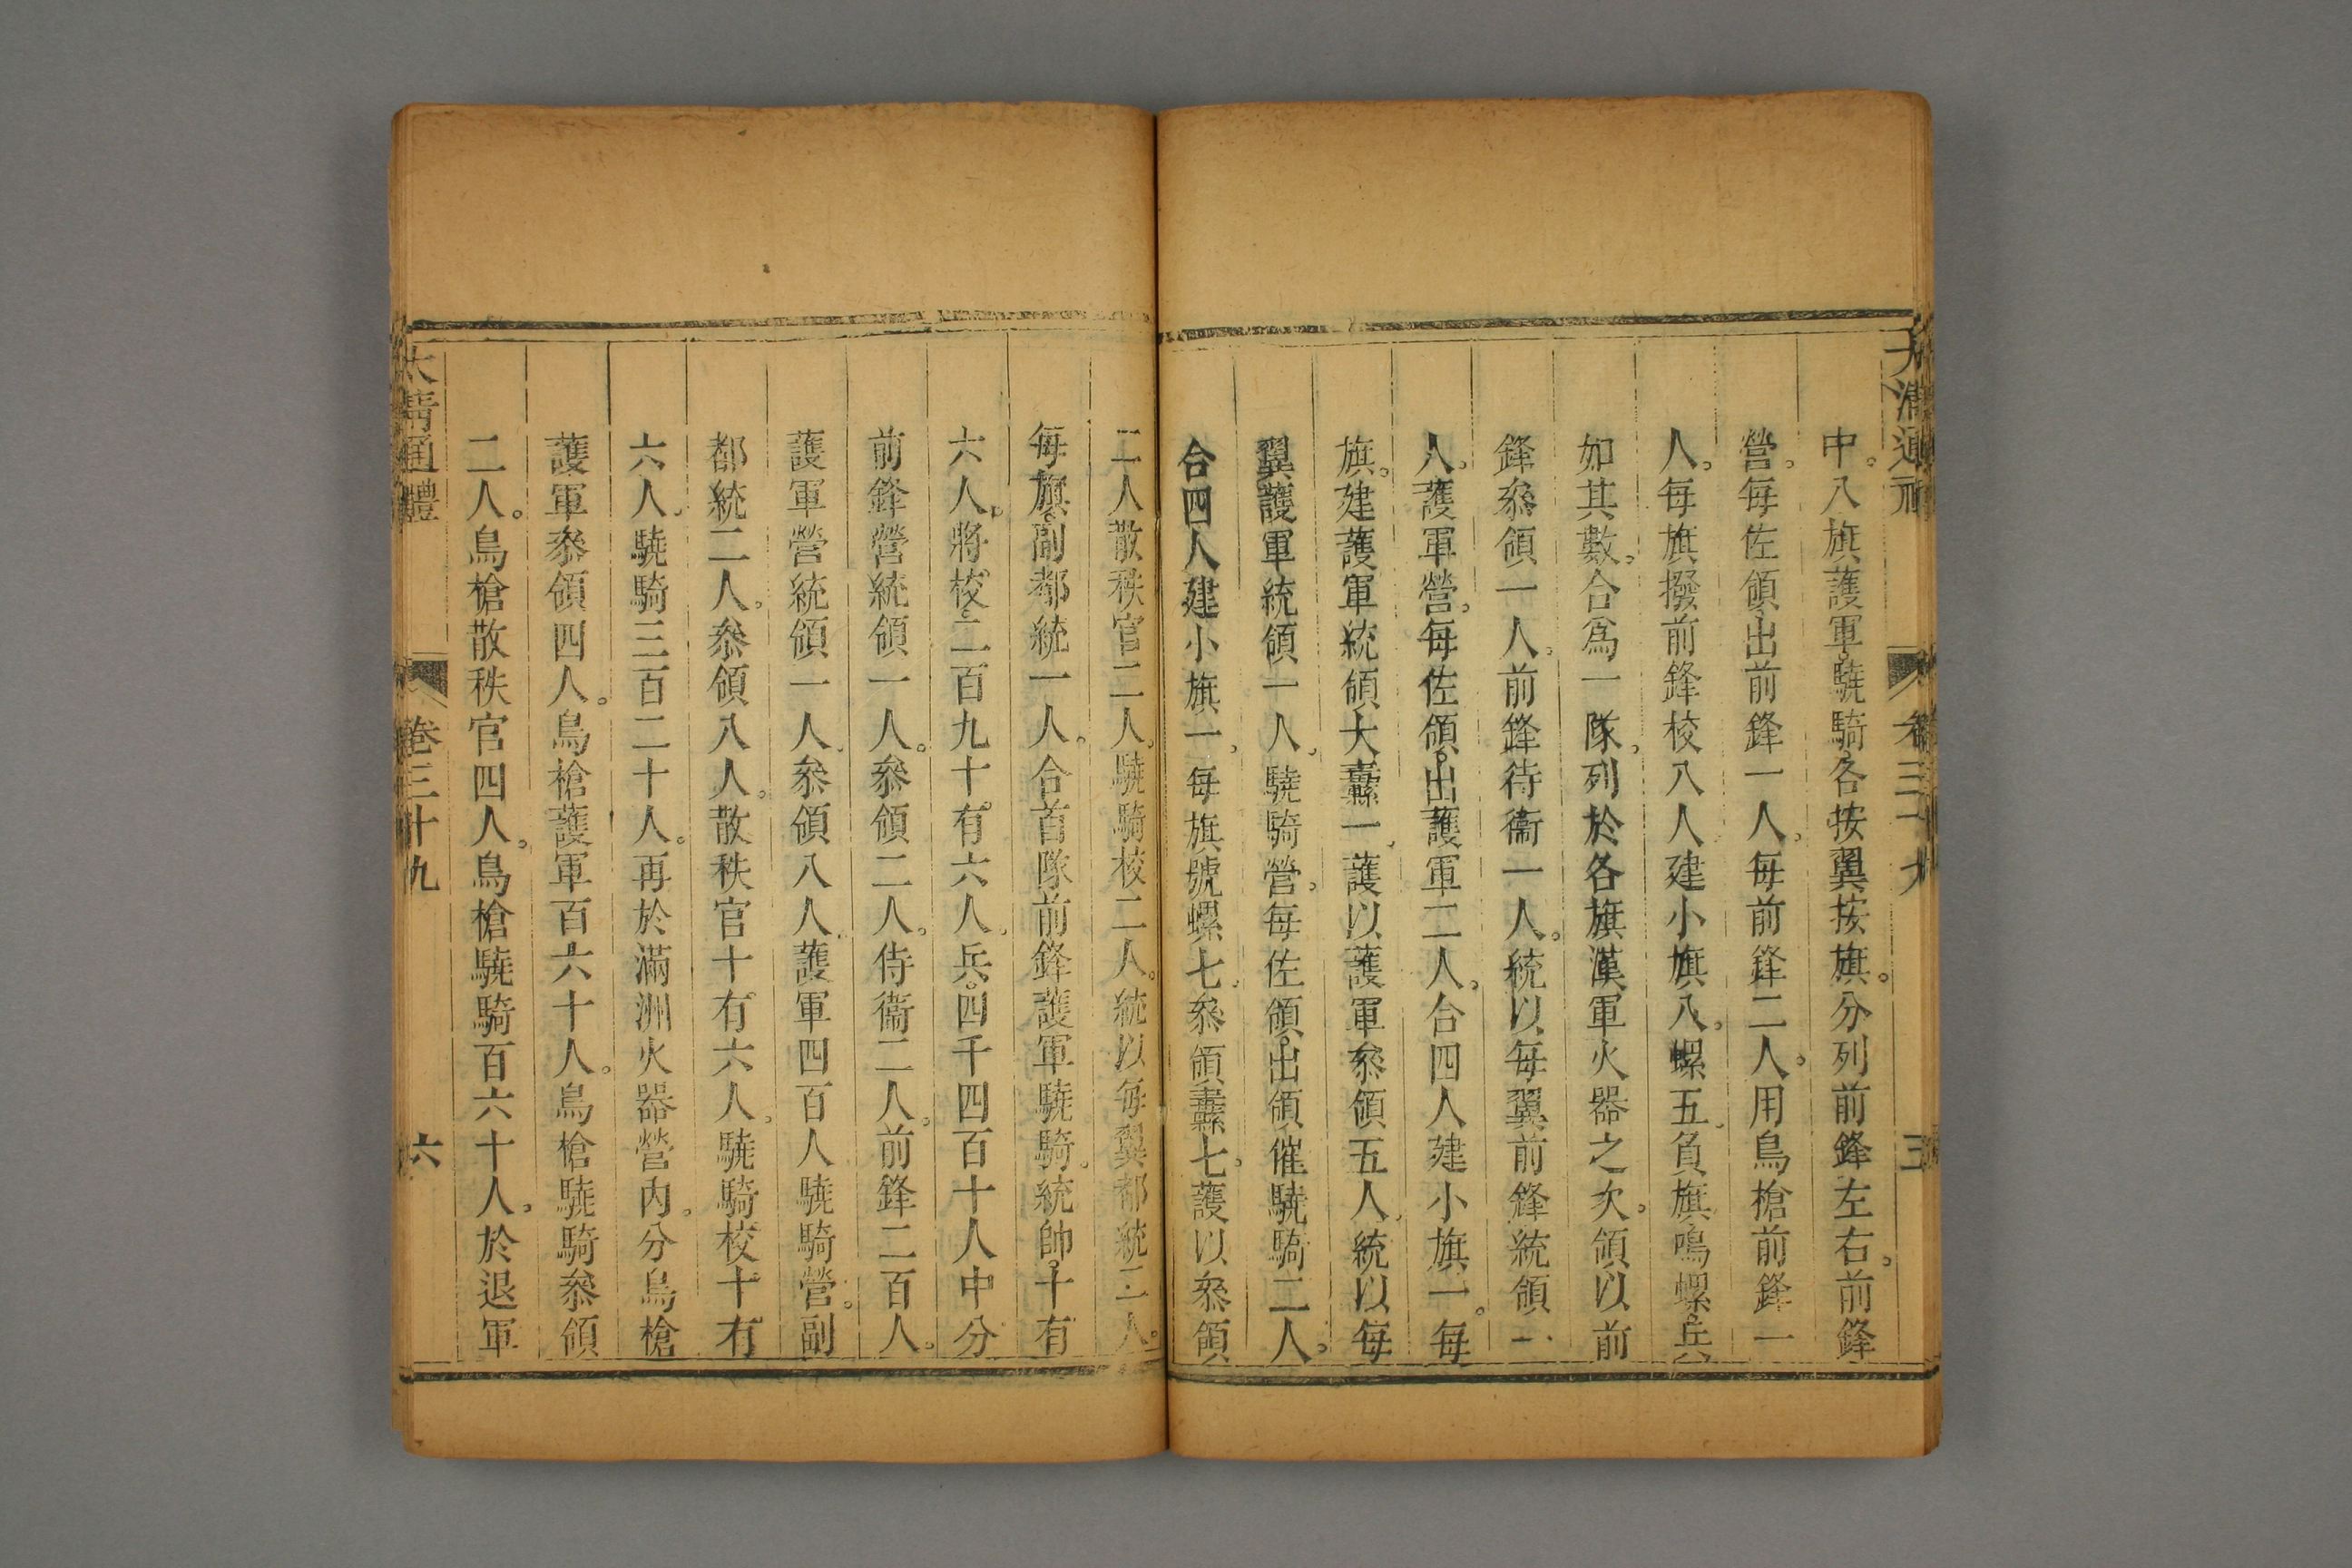 大清通禮 卷三十九 三
中。八旗護軍。驍騎。各按翼按旗。分列前鋒左右。前鋒
營。每佐領。出前鋒一人。每前鋒二人。用鳥槍前鋒一
人。每旗撥前鋒校八人建小旗八。螺五。負旗。鳴螺。兵
如其數。合爲一隊。列於各旗漢軍火器之次。領以前
鋒叅領一人。前鋒待衞一人。統以每翼前鋒統領一
人。護軍營。每佐領。出護軍二人。合四人建小旗一。每
旗。建護軍統領大纛一。護以護軍叅領五人。統以每
翼護軍統領一人。驍騎營。每佐領。出領催驍騎二人。
合四人建小旗一。每旗號螺七。叅領纛七。護以叅領
二人散秩官二人。驍騎校二人。統以每翼都統二人。
每旗。副都統一人。合首隊前鋒護軍驍騎。統帥。十有
六人。將校。二百九十。有六人。兵。四千四百十人中分
前鋒營統領一人。叅領二人。侍衞二人。前鋒二百人。
護軍營統領一人。叅領八人。護軍四百人驍騎營。副
都統二人。叅領八人。散秩官十有六人。驍騎校十有
六人。驍騎三百二十人。再於滿洲火器營內。分鳥槍
護軍叅領四人。鳥槍護軍百六十人。鳥槍驍騎叅領
二人。鳥槍散秩官四人。鳥槍驍騎百六十人。於退軍
大清通禮 卷三十九 六